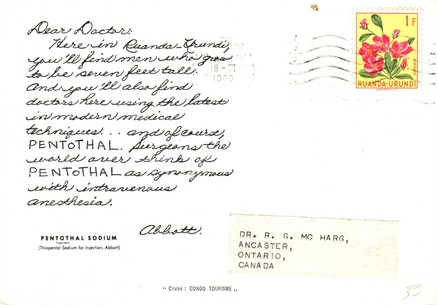 Dear Doctor:
Here in Ruanda-Urundi,
you'll find men who grow
to be seven feet tall.
And you'll also find
doctors here using the latest
in modern medical
techniques... and of course,
PENTOTHAL. Surgeons the
world over think of
PENTOTHAL as synonymous
with intravenous
anesthesia.
Abbott.
PENTOTHAL SODIUM
(Thiopental Sodium for Injection, Abbott)
18-
1960
1F
RUANDA-URUNDI
DR. R. G. MC HARG,
ANCASTER,
ONTARIO,
CANADA
" Cliché : CONGO TOURISME "